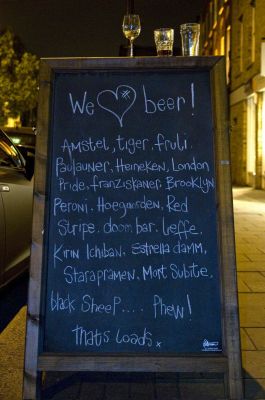 We ♡ beer!
Amstel, tiger, fruli,
Paulauner, Heineken, London
Pride, franziskaner, Brooklyn
Peroni, Hoegaarden, Red
Stripe, doom bar, Leffe,
Kirin Ichiban, Estrella damm,
Starapramen, Mort Subite,
black Sheep.... Phew!
Thats loads x